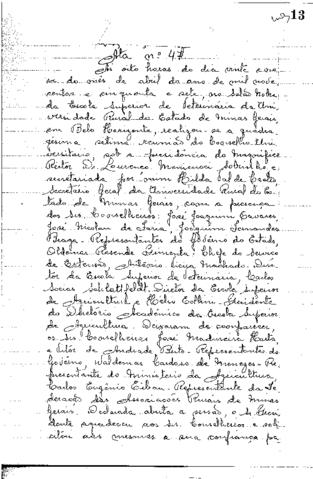 13
Ata nº 47
Às oito horas do dia vinte e no-
ve do mês de abril do ano de mil nove-
centos e cinquenta e sete, no Salão Nobre
da Escola Superior de Veterinária da Uni-
versidade Rural do Estado de Minas Gerais,
em Belo Horizonte, realizou-se a quadra-
gésima sétima reunião do Conselho Uni-
versitário sob a presidência do Magnífico
Reitor Dr. Lourenço Menicucci Sobrinho e
secretariada por mim Hilda Val de Castro
Secretário Geral da Universidade Rural do Es-
tado de Minas Gerais, com a presença
dos Srs. Conselheiros: José Joaquim Tavares,
José Nicolau de Faria, Joaquim Fernandes
Braga - Representantes do Govêrno do Estado,
Oldemar Resende Pimenta, Chefe do Serviço
de Extensão, Antônio Machado, Dire-
tor da Escola Superior de Veterinária, Carlos
Socias Schlottfeldt, Diretor da Escola Superior
de Agricultura e Presidente
do Diretório Acadêmico da Escola Superior
de Agricultura. Deixaram de comparecer,
os Srs. Conselheiros José Madureira Horta
e de Andrade Brito - Representantes do
Govêrno Waldemar Cardoso de Menezes - Re-
presentante do Ministério da Agricultura,
Carlos Eugênio - Representante da Fe-
deração das Associações Rurais de Minas
Gerais. Declarada aberta a sessão, o Sr. Presi-
dente agradeceu aos Srs. Conselheiros e soli-
citou aos mesmos a sua confiança pa-